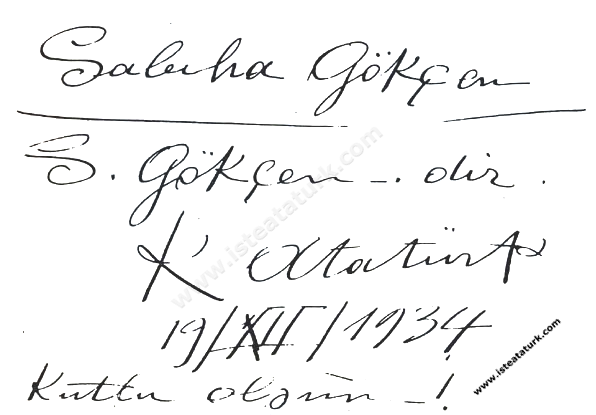 Sabiha Gökçen
S. Gökçen -. dir.
K. Atatürk
19/XII/1934
Kutlu olsun -!
www.isteataturk.com
www.isteataturk.com